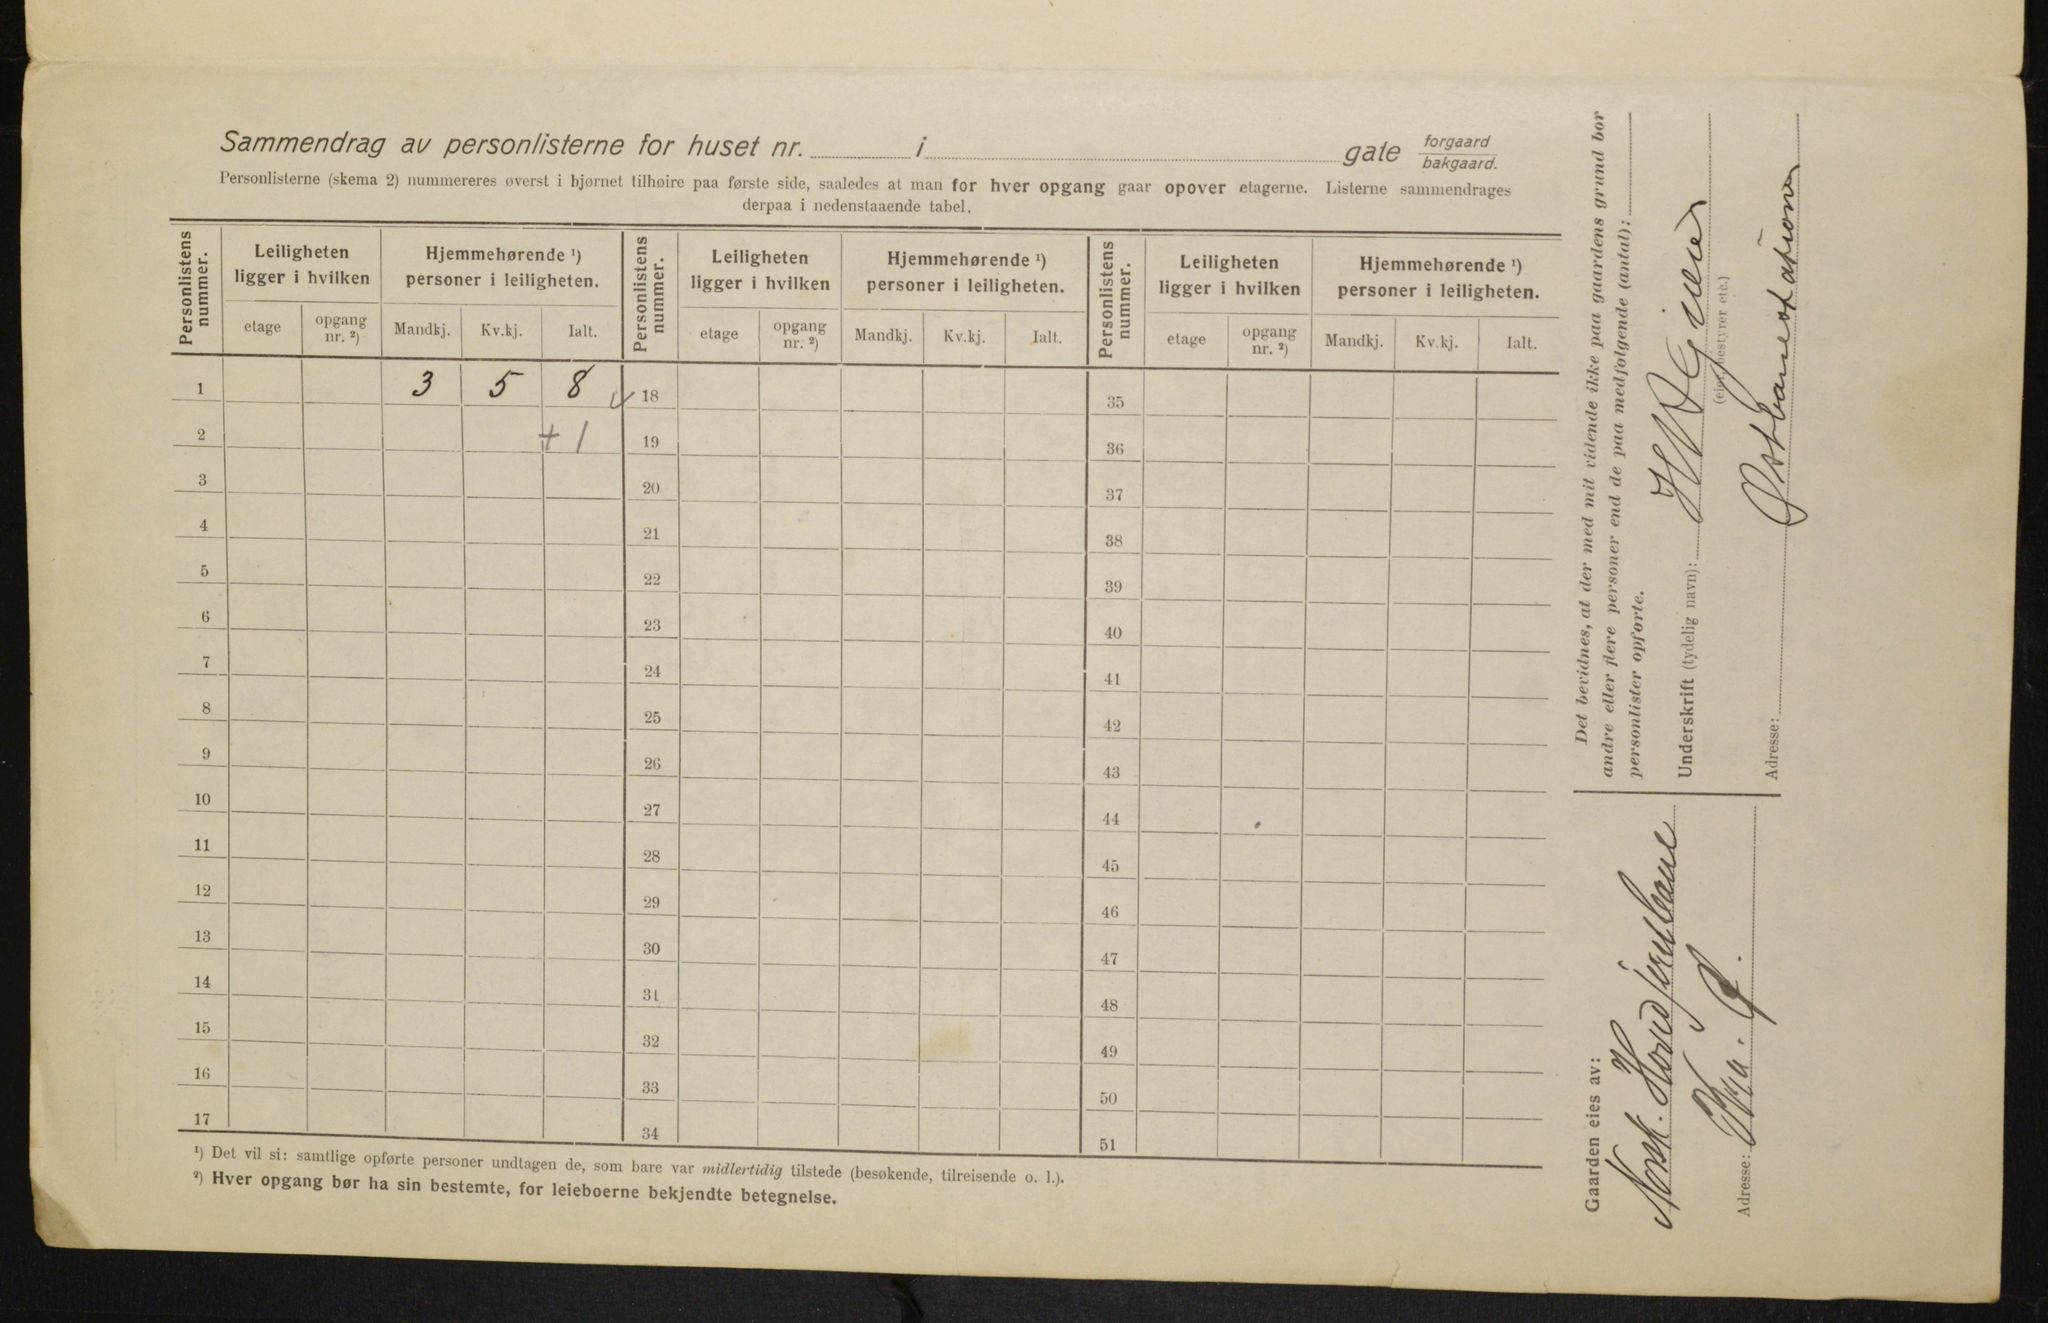 Sammendrag av personlisterne for huset nr. i gate forgaard
bakgaard.
Personlisterne (skema 2) nummereres øverst i hjørnet tilhøire paa første side, saaledes at man for hver opgang gaar opover etagerne. Listerne sammendrages
derpaa i nedenstaaende tabel.
Personlistens nummer. Leiligheten ligger i hvilken Hjemmehørende ¹) personer i leiligheten. Personlistens nummer. Leiligheten ligger i hvilken Hjemmehørende ¹) personer i leiligheten. Personlistens nummer. Leiligheten ligger i hvilken Hjemmehørende ¹) personer i leiligheten.
etage opgang nr. ²) Mandkj. Kv.kj. Ialt. etage opgang nr. ²) Mandkj. Kv.kj. Ialt. etage opgang nr. ²) Mandkj. Kv.kj. Ialt.
1 3 5 8 18 35
2 + 1 19 36
3 20 37
4 21 38
5 22 39
6 23 40
7 24 41
8 25 42
9 26 43
10 27 44
11 28 45
12 29 46
13 30 47
14 31 48
15 32 49
16 33 50
17 34 51
¹) Det vil si: samtlige opførte personer undtagen de, som bare var midlertidig tilstede (besøkende, tilreisende o. l.).
²) Hver opgang bør ha sin bestemte, for leieboerne bekjendte betegnelse.
Det bevidnes, at der med mit vidende ikke paa gaardens grund bor
andre eller flere personer end de paa medfølgende (antal):
personlister opførte.
Underskrift (tydelig navn):
(eier, bestyrer etc.)
Adresse: Østbanestationen
Gaarden eies av:
Norsk. Hovedjernbane
Adresse: Kra. Ø.